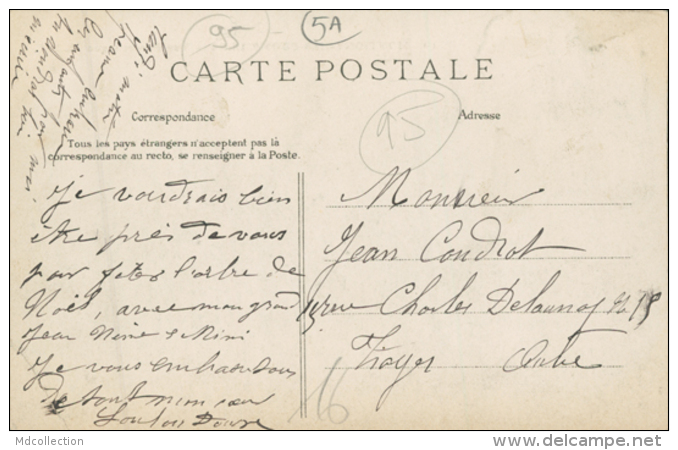 95
5A
CARTE POSTALE
95
Correspondance
Adresse
Tous les pays étrangers n'acceptent pas la
correspondance au recto, se renseigner à la Poste.
Je voudrais bien
être près de vous
pour fêter l'arbre de
Noël, avec mon grand
Jean Nine & Mimi
Je vous embrasse tous
de tout mon cœur
Loulou
Monsieur
Jean Coudrot
15 rue Charles Delaunay No 15
Troyes Aube
16
Mdcollection
www.delcampe.net